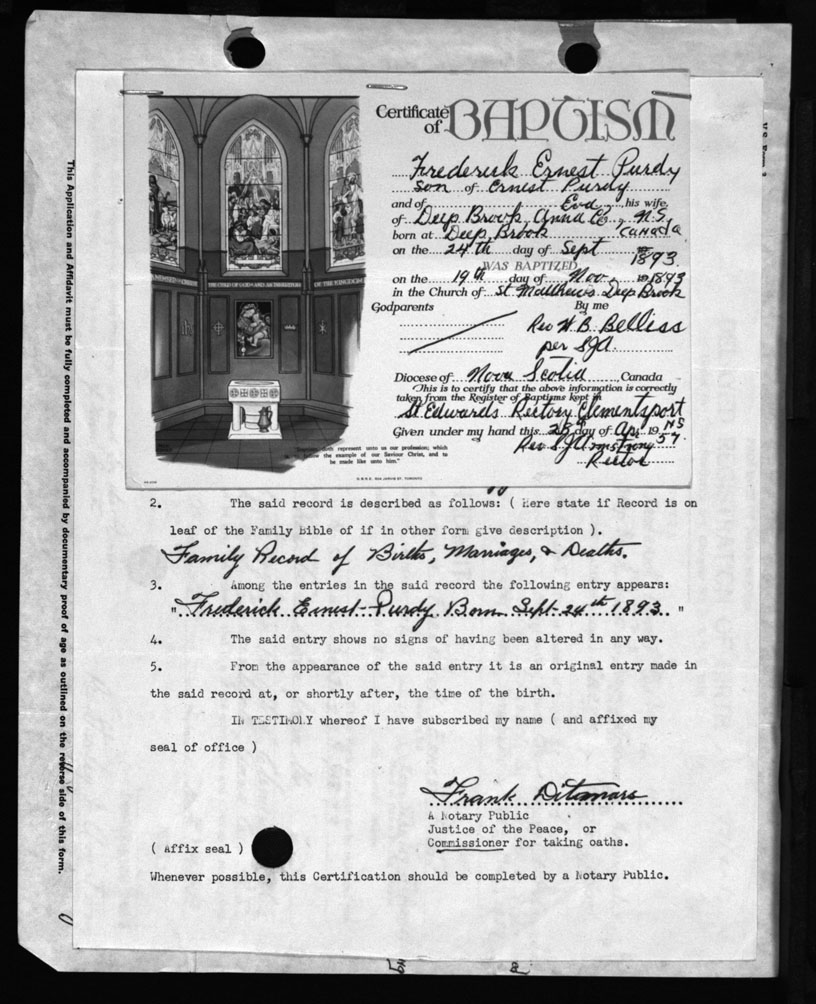 Certificate of BAPTISM
Frederick Ernest Purdy
Son of Ernest Purdy
and of Eva, his wife
of Deep Brook, Anna Co., N.S.
born at Deep Brook Canada
on the 24th day of Sept 1893
WAS BAPTIZED
on the 19th day of Nov. 1893
in the Church of St. Matthew's Deep Brook
Godparents By me
Rev W. B. Belliss
per SJA
Diocese of Nova Scotia, Canada
This is to certify that the above information is correctly
taken from the Register of Baptisms kept in
St. Edwards Rectory Clementsport NS
Given under my hand this 28th day of Apr. 1957
Rev SJ Armstrong
Rector
THE CHILD OF GOD AND AN INHERITOR
OF THE KINGDOM
doth represent unto us our profession; which
the example of our Saviour Christ, and to
be made like unto him."
2. The said record is described as follows: ( Here state if Record is on
leaf of the Family Bible of if in other form give description ).
Family Record of Births, Marriages, & Deaths.
3. Among the entries in the said record the following entry appears:
" Frederick Ernest Purdy Born Sept. 24th 1893. "
4. The said entry shows no signs of having been altered in any way.
5. From the appearance of the said entry it is an original entry made in
the said record at, or shortly after, the time of the birth.
IN TESTIMONY whereof I have subscribed my name ( and affixed my
seal of office )
Frank Ditmars
A Notary Public
Justice of the Peace, or
Commissioner for taking oaths.
( Affix seal )
Whenever possible, this Certification should be completed by a Notary Public.
This Application and Affidavit must be fully completed and accompanied by documentary proof of age as outlined on the reverse side of this form.